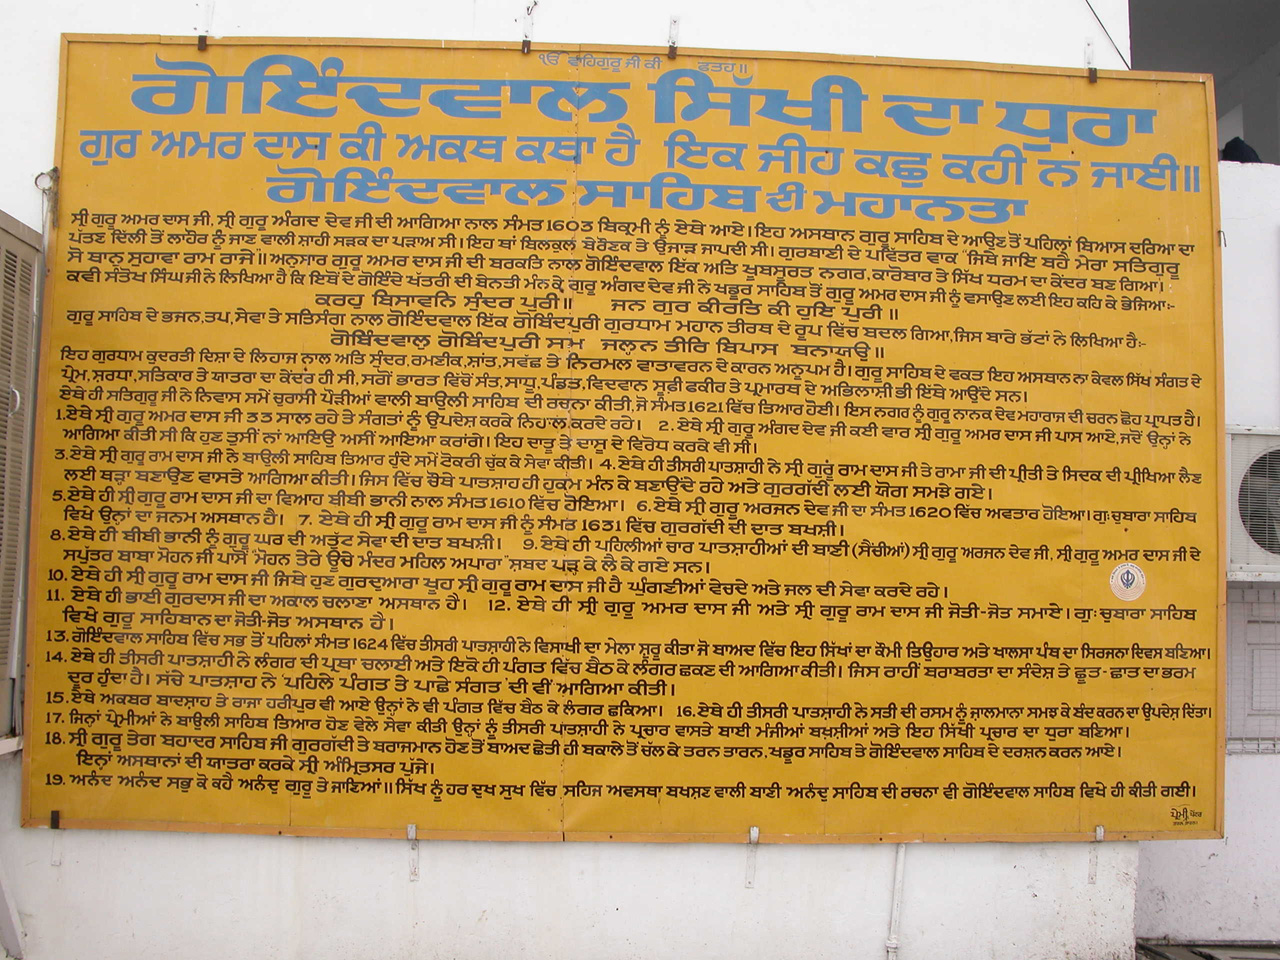 ੴ ਵਾਹਿਗੁਰੂ ਜੀ ਕੀ ਫਤਹ॥
ਗੋਇੰਦਵਾਲ ਸਿੱਖੀ ਦਾ ਧੁਰਾ
ਗੁਰ ਅਮਰ ਦਾਸ ਕੀ ਅਕਥ ਕਥਾ ਹੈ ਇਕ ਜੀਹ ਕਛੁ ਕਹੀ ਨ ਜਾਈ॥
ਗੋਇੰਦਵਾਲ ਸਾਹਿਬ ਦੀ ਮਹਾਨਤਾ
ਸ੍ਰੀ ਗੁਰੂ ਅਮਰ ਦਾਸ ਜੀ, ਸ੍ਰੀ ਗੁਰੂ ਅੰਗਦ ਦੇਵ ਜੀ ਦੀ ਆਗਿਆ ਨਾਲ ਸੰਮਤ 1603 ਬਿਕ੍ਰਮੀ ਨੂੰ ਏਥੇ ਆਏ। ਇਹ ਅਸਥਾਨ ਗੁਰੂ ਸਾਹਿਬ ਦੇ ਆਉਣ ਤੋਂ ਪਹਿਲਾਂ ਬਿਆਸ ਦਰਿਆ ਦਾ
ਪੱਤਣ ਦਿੱਲੀ ਤੋਂ ਲਾਹੌਰ ਨੂੰ ਜਾਣ ਵਾਲੀ ਸ਼ਾਹੀ ਸੜਕ ਦਾ ਪੜਾਅ ਸੀ। ਇਹ ਥਾਂ ਬਿਲਕੁਲ ਬੇਰੌਣਕ ਤੇ ਉਜਾੜ ਜਾਪਦੀ ਸੀ। ਗੁਰਬਾਣੀ ਦੇ ਪਵਿੱਤਰ ਵਾਕ "ਜਿਥੈ ਜਾਇ ਬਹੈ ਮੇਰਾ ਸਤਿਗੁਰੂ
ਸੋ ਥਾਨੁ ਸੁਹਾਵਾ ਰਾਮ ਰਾਜੇ"॥ ਅਨੁਸਾਰ ਗੁਰੂ ਅਮਰ ਦਾਸ ਜੀ ਦੀ ਬਰਕਤਿ ਨਾਲ ਗੋਇੰਦਵਾਲ ਇੱਕ ਅਤਿ ਖ਼ੂਬਸੂਰਤ ਨਗਰ, ਕਾਰੋਬਾਰ ਤੇ ਸਿੱਖ ਧਰਮ ਦਾ ਕੇਂਦਰ ਬਣ ਗਿਆ।
ਕਵੀ ਸੰਤੋਖ ਸਿੰਘ ਜੀ ਨੇ ਲਿਖਿਆ ਹੈ ਕਿ ਇਥੋਂ ਦੇ ਗੋਇੰਦੇ ਖੱਤਰੀ ਦੀ ਬੇਨਤੀ ਮੰਨ ਕੇ ਗੁਰੂ ਅੰਗਦ ਦੇਵ ਜੀ ਨੇ ਖਡੂਰ ਸਾਹਿਬ ਤੋਂ ਗੁਰੂ ਅਮਰ ਦਾਸ ਜੀ ਨੂੰ ਵਸਾਉਣ ਲਈ ਇਹ ਕਹਿ ਕੇ ਭੇਜਿਆ:-
ਕਰਹੁ ਬਿਸਾਵਨਿ ਸੁੰਦਰ ਪੁਰੀ॥ ਜਨ ਗੁਰ ਕੀਰਤਿ ਕੀ ਹੁਇ ਪੁਰੀ॥
ਗੁਰੂ ਸਾਹਿਬ ਦੇ ਭਜਨ, ਤਪ, ਸੇਵਾ ਤੇ ਸਤਿਸੰਗ ਨਾਲ ਗੋਇੰਦਵਾਲ ਇੱਕ ਗੋਬਿੰਦਪੁਰੀ ਗੁਰਧਾਮ ਮਹਾਨ ਤੀਰਥ ਦੇ ਰੂਪ ਵਿੱਚ ਬਦਲ ਗਿਆ, ਜਿਸ ਬਾਰੇ ਭੱਟਾਂ ਨੇ ਲਿਖਿਆ ਹੈ:-
ਗੋਬਿੰਦਵਾਲੁ ਗੋਬਿੰਦਪੁਰੀ ਸਮ ਜਲ੍ਹਨ ਤੀਰਿ ਬਿਪਾਸ ਬਨਾਯਉ॥
ਇਹ ਗੁਰਧਾਮ ਕੁਦਰਤੀ ਦਿਸ਼ਾ ਦੇ ਲਿਹਾਜ ਨਾਲ ਅਤਿ ਸੁੰਦਰ, ਰਮਣੀਕ, ਸ਼ਾਂਤ, ਸਵੱਛ ਤੇ ਨਿਰਮਲ ਵਾਤਾਵਰਨ ਦੇ ਕਾਰਨ ਅਨੂਪਮ ਹੈ। ਗੁਰੂ ਸਾਹਿਬ ਦੇ ਵਕਤ ਇਹ ਅਸਥਾਨ ਨਾ ਕੇਵਲ ਸਿੱਖ ਸੰਗਤ ਦੇ
ਪ੍ਰੇਮ, ਸ਼ਰਧਾ, ਸਤਿਕਾਰ ਤੇ ਯਾਤਰਾ ਦਾ ਕੇਂਦਰ ਹੀ ਸੀ, ਸਗੋਂ ਭਾਰਤ ਵਿੱਚੋਂ ਸੰਤ, ਸਾਧੂ, ਪੰਡਤ, ਵਿਦਵਾਨ ਸੂਫੀ ਫਕੀਰ ਤੇ ਪ੍ਰਮਾਰਥ ਦੇ ਅਭਿਲਾਸ਼ੀ ਭੀ ਇੱਥੇ ਆਉਂਦੇ ਸਨ।
ਏਥੇ ਹੀ ਸਤਿਗੁਰੂ ਜੀ ਨੇ ਨਿਵਾਸ ਸਮੇਂ ਚੁਰਾਸੀ ਪੌੜੀਆਂ ਵਾਲੀ ਬਾਉਲੀ ਸਾਹਿਬ ਦੀ ਰਚਨਾ ਕੀਤੀ, ਜੋ ਸੰਮਤ 1621 ਵਿੱਚ ਤਿਆਰ ਹੋਈ। ਇਸ ਨਗਰ ਨੂੰ ਗੁਰੂ ਨਾਨਕ ਦੇਵ ਮਹਾਰਾਜ ਦੀ ਚਰਨ ਛੋਹ ਪ੍ਰਾਪਤ ਹੈ।
1. ਏਥੇ ਸ੍ਰੀ ਗੁਰੂ ਅਮਰ ਦਾਸ ਜੀ 33 ਸਾਲ ਰਹੇ ਤੇ ਸੰਗਤਾਂ ਨੂੰ ਉਪਦੇਸ਼ ਕਰਕੇ ਨਿਹਾਲ ਕਰਦੇ ਰਹੇ। 2. ਏਥੇ ਸ੍ਰੀ ਗੁਰੂ ਅੰਗਦ ਦੇਵ ਜੀ ਕਈ ਵਾਰ ਸ੍ਰੀ ਗੁਰੂ ਅਮਰ ਦਾਸ ਜੀ ਪਾਸ ਆਏ, ਜਦੋਂ ਉਨ੍ਹਾਂ ਨੇ
ਆਗਿਆ ਕੀਤੀ ਸੀ ਕਿ ਹੁਣ ਤੁਸੀਂ ਨਾਂ ਆਇਉ ਅਸੀਂ ਆਇਆ ਕਰਾਂਗੇ। ਇਹ ਦਾਤੂ ਤੇ ਦਾਸੂ ਦੇ ਵਿਰੋਧ ਕਰਕੇ ਵੀ ਸੀ।
3. ਏਥੇ ਸ੍ਰੀ ਗੁਰੂ ਰਾਮ ਦਾਸ ਜੀ ਨੇ ਬਾਉਲੀ ਸਾਹਿਬ ਤਿਆਰ ਹੁੰਦੇ ਸਮੇਂ ਟੋਕਰੀ ਚੁੱਕ ਕੇ ਸੇਵਾ ਕੀਤੀ। 4. ਏਥੇ ਹੀ ਤੀਸਰੀ ਪਾਤਸ਼ਾਹੀ ਨੇ ਸ੍ਰੀ ਗੁਰੂ ਰਾਮ ਦਾਸ ਜੀ ਤੇ ਰਾਮਾ ਜੀ ਦੀ ਪ੍ਰੀਤੀ ਤੇ ਸਿਦਕ ਦੀ ਪ੍ਰੀਖਿਆ ਲੈਣ
ਲਈ ਥੜਾ ਬਣਾਉਣ ਵਾਸਤੇ ਆਗਿਆ ਕੀਤੀ। ਜਿਸ ਵਿੱਚ ਚੌਥੇ ਪਾਤਸ਼ਾਹ ਹੀ ਹੁਕਮ ਮੰਨ ਕੇ ਬਣਾਉਂਦੇ ਰਹੇ ਅਤੇ ਗੁਰਗੱਦੀ ਲਈ ਯੋਗ ਸਮਝੇ ਗਏ।
5. ਏਥੇ ਹੀ ਸ੍ਰੀ ਗੁਰੂ ਰਾਮ ਦਾਸ ਜੀ ਦਾ ਵਿਆਹ ਬੀਬੀ ਭਾਨੀ ਨਾਲ ਸੰਮਤ 1610 ਵਿੱਚ ਹੋਇਆ। 6. ਏਥੇ ਸ੍ਰੀ ਗੁਰੂ ਅਰਜਨ ਦੇਵ ਜੀ ਦਾ ਸੰਮਤ 1620 ਵਿੱਚ ਅਵਤਾਰ ਹੋਇਆ। ਗੁ: ਚੁਬਾਰਾ ਸਾਹਿਬ
ਵਿਖੇ ਉਨ੍ਹਾਂ ਦਾ ਜਨਮ ਅਸਥਾਨ ਹੈ। 7. ਏਥੇ ਹੀ ਸ੍ਰੀ ਗੁਰੂ ਰਾਮ ਦਾਸ ਜੀ ਨੂੰ ਸੰਮਤ 1631 ਵਿੱਚ ਗੁਰਗੱਦੀ ਦੀ ਦਾਤ ਬਖਸ਼ੀ।
8. ਏਥੇ ਹੀ ਬੀਬੀ ਭਾਨੀ ਨੂੰ ਗੁਰੂ ਘਰ ਦੀ ਅਤੁੱਟ ਸੇਵਾ ਦੀ ਦਾਤ ਬਖਸ਼ੀ। 9. ਏਥੇ ਹੀ ਪਹਿਲੀਆਂ ਚਾਰ ਪਾਤਸ਼ਾਹੀਆਂ ਦੀ ਬਾਣੀ (ਸੈਂਚੀਆਂ) ਸ੍ਰੀ ਗੁਰੂ ਅਰਜਨ ਦੇਵ ਜੀ, ਸ੍ਰੀ ਗੁਰੂ ਅਮਰ ਦਾਸ ਜੀ ਦੇ
ਸਪੁੱਤਰ ਬਾਬਾ ਮੋਹਨ ਜੀ ਪਾਸੋਂ "ਮੋਹਨ ਤੇਰੇ ਊਚੇ ਮੰਦਰ ਮਹਿਲ ਅਪਾਰਾ" ਸ਼ਬਦ ਪੜ੍ਹ ਕੇ ਲੈ ਕੇ ਗਏ ਸਨ।
10. ਏਥੇ ਹੀ ਸ੍ਰੀ ਗੁਰੂ ਰਾਮ ਦਾਸ ਜੀ ਜਿਥੇ ਹੁਣ ਗੁਰਦੁਆਰਾ ਖੂਹ ਸ੍ਰੀ ਗੁਰੂ ਰਾਮ ਦਾਸ ਜੀ ਹੈ ਘੁੰਗਣੀਆਂ ਵੇਚਦੇ ਅਤੇ ਜਲ ਦੀ ਸੇਵਾ ਕਰਦੇ ਰਹੇ।
11. ਏਥੇ ਹੀ ਭਾਈ ਗੁਰਦਾਸ ਜੀ ਦਾ ਅਕਾਲ ਚਲਾਣਾ ਅਸਥਾਨ ਹੈ। 12. ਏਥੇ ਹੀ ਸ੍ਰੀ ਗੁਰੂ ਅਮਰ ਦਾਸ ਜੀ ਅਤੇ ਸ੍ਰੀ ਗੁਰੂ ਰਾਮ ਦਾਸ ਜੀ ਜੋਤੀ-ਜੋਤ ਸਮਾਏ। ਗੁ: ਚੁਬਾਰਾ ਸਾਹਿਬ
ਵਿਖੇ ਗੁਰੂ ਸਾਹਿਬਾਨ ਦਾ ਜੋਤੀ-ਜੋਤ ਅਸਥਾਨ ਹੈ।
13. ਗੋਇੰਦਵਾਲ ਸਾਹਿਬ ਵਿੱਚ ਸਭ ਤੋਂ ਪਹਿਲਾਂ ਸੰਮਤ 1624 ਵਿੱਚ ਤੀਸਰੀ ਪਾਤਸ਼ਾਹੀ ਨੇ ਵਿਸਾਖੀ ਦਾ ਮੇਲਾ ਸ਼ੁਰੂ ਕੀਤਾ ਜੋ ਬਾਅਦ ਵਿੱਚ ਇਹ ਸਿੱਖਾਂ ਦਾ ਕੌਮੀ ਤਿਉਹਾਰ ਅਤੇ ਖਾਲਸਾ ਪੰਥ ਦਾ ਸਿਰਜਨਾ ਦਿਵਸ ਬਣਿਆ।
14. ਏਥੇ ਹੀ ਤੀਸਰੀ ਪਾਤਸ਼ਾਹੀ ਨੇ ਲੰਗਰ ਦੀ ਪ੍ਰਥਾ ਚਲਾਈ ਅਤੇ ਇਕੋ ਹੀ ਪੰਗਤ ਵਿੱਚ ਬੈਠ ਕੇ ਲੰਗਰ ਛਕਣ ਦੀ ਆਗਿਆ ਕੀਤੀ। ਜਿਸ ਰਾਹੀਂ ਬਰਾਬਰਤਾ ਦਾ ਸੰਦੇਸ਼ ਤੇ ਛੂਤ-ਛਾਤ ਦਾ ਭਰਮ
ਦੂਰ ਹੁੰਦਾ ਹੈ। ਸੱਚੇ ਪਾਤਸ਼ਾਹ ਨੇ 'ਪਹਿਲੇ ਪੰਗਤ ਤੇ ਪਾਛੇ ਸੰਗਤ' ਦੀ ਵੀਂ ਆਗਿਆ ਕੀਤੀ।
15. ਏਥੇ ਅਕਬਰ ਬਾਦਸ਼ਾਹ ਤੇ ਰਾਜਾ ਹਰੀਪੁਰ ਵੀ ਆਏ ਉਨ੍ਹਾਂ ਨੇ ਵੀ ਪੰਗਤ ਵਿੱਚ ਬੈਠ ਕੇ ਲੰਗਰ ਛਕਿਆ। 16. ਏਥੇ ਹੀ ਤੀਸਰੀ ਪਾਤਸ਼ਾਹੀ ਨੇ ਸਤੀ ਦੀ ਰਸਮ ਨੂੰ ਜ਼ਾਲਮਾਨਾ ਸਮਝ ਕੇ ਬੰਦ ਕਰਨ ਦਾ ਉਪਦੇਸ਼ ਦਿੱਤਾ।
17. ਜਿਨ੍ਹਾਂ ਪ੍ਰੇਮੀਆਂ ਨੇ ਬਾਉਲੀ ਸਾਹਿਬ ਤਿਆਰ ਹੋਣ ਵੇਲੇ ਸੇਵਾ ਕੀਤੀ ਉਨ੍ਹਾਂ ਨੂੰ ਤੀਸਰੀ ਪਾਤਸ਼ਾਹੀ ਨੇ ਪ੍ਰਚਾਰ ਵਾਸਤੇ ਬਾਈ ਮੰਜੀਆਂ ਬਖ਼ਸ਼ੀਆਂ ਅਤੇ ਇਹ ਸਿੱਖੀ ਪ੍ਰਚਾਰ ਦਾ ਧੁਰਾ ਬਣਿਆ।
18. ਸ੍ਰੀ ਗੁਰੂ ਤੇਗ ਬਹਾਦਰ ਸਾਹਿਬ ਜੀ ਗੁਰਗੱਦੀ ਤੇ ਬਰਾਜਮਾਨ ਹੋਣ ਤੋਂ ਬਾਅਦ ਛੇਤੀ ਹੀ ਬਕਾਲੇ ਤੋਂ ਚੱਲ ਕੇ ਤਰਨ ਤਾਰਨ, ਖਡੂਰ ਸਾਹਿਬ ਤੇ ਗੋਇੰਦਵਾਲ ਸਾਹਿਬ ਦੇ ਦਰਸ਼ਨ ਕਰਨ ਆਏ।
ਇਨ੍ਹਾਂ ਅਸਥਾਨਾਂ ਦੀ ਯਾਤਰਾ ਕਰਕੇ ਸ੍ਰੀ ਅੰਮ੍ਰਿਤਸਰ ਪੁੱਜੇ।
19. ਅਨੰਦ ਅਨੰਦ ਸਭੁ ਕੋ ਕਹੈ ਅਨੰਦੁ ਗੁਰੂ ਤੇ ਜਾਣਿਆ॥ ਸਿੱਖ ਨੂੰ ਹਰ ਦੁਖ ਸੁਖ ਵਿੱਚ ਸਹਿਜ ਅਵਸਥਾ ਬਖਸ਼ਣ ਵਾਲੀ ਬਾਣੀ ਅਨੰਦੁ ਸਾਹਿਬ ਦੀ ਰਚਨਾ ਵੀ ਗੋਇੰਦਵਾਲ ਸਾਹਿਬ ਵਿਖੇ ਹੀ ਕੀਤੀ ਗਈ।
ਪ੍ਰੇਮੀ ਪੇਂਟਰ